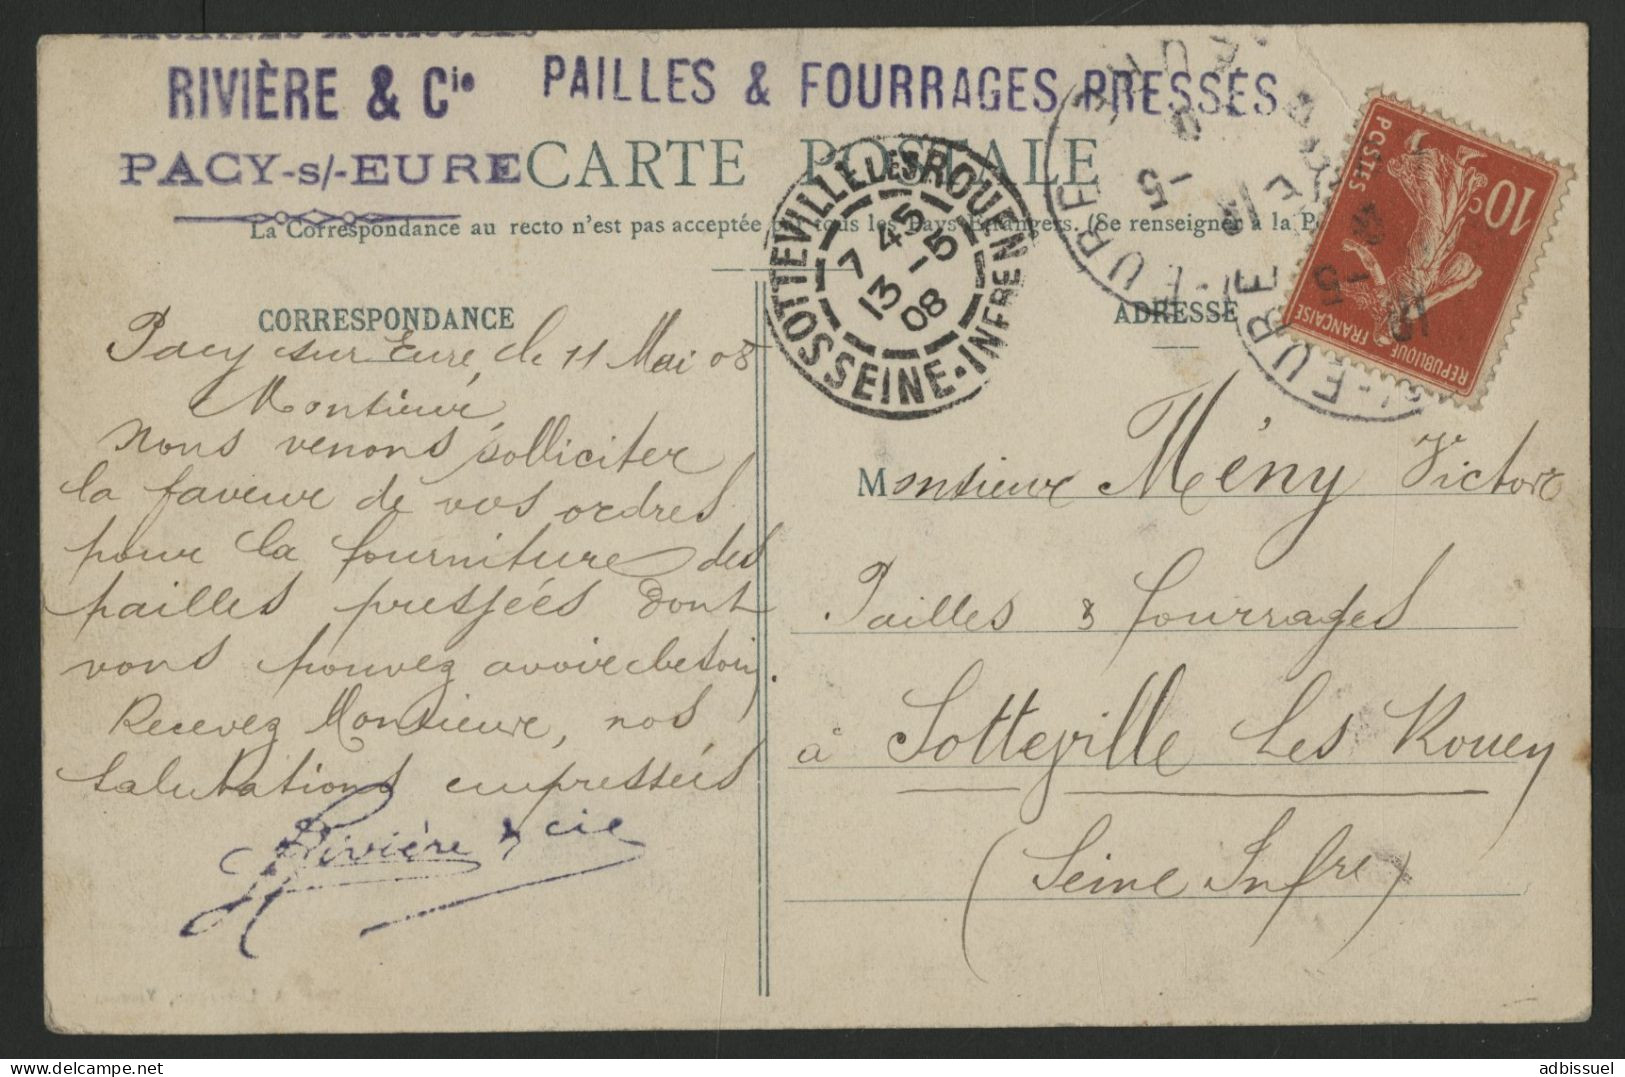 MACHINES AGRICOLES
RIVIÈRE & Cie PAILLES & FOURRAGES PRESSÉS
PACY-s/-EURE
CARTE POSTALE
La Correspondance au recto n'est pas acceptée par tous les Pays Etrangers. (Se renseigner à la
SOTTEVILLE LES ROUEN
7 45
13 - 5
08
SEINE-INFRE
10c
POSTES
REPUBLIQUE FRANÇAISE
CORRESPONDANCE
Pacy sur Eure, le 11 Mai 08
Monsieur,
Nous venons solliciter
la faveur de vos ordres
pour la fourniture des
pailles pressées dont
vous pouvez avoir besoin.
Recevez Monsieur, nos
salutations empressées
Rivière & cie
ADRESSE
Monsieur Mény Victor
Pailles & fourrages
à Sotteville Les Rouen
(Seine Infre)
adbissuel